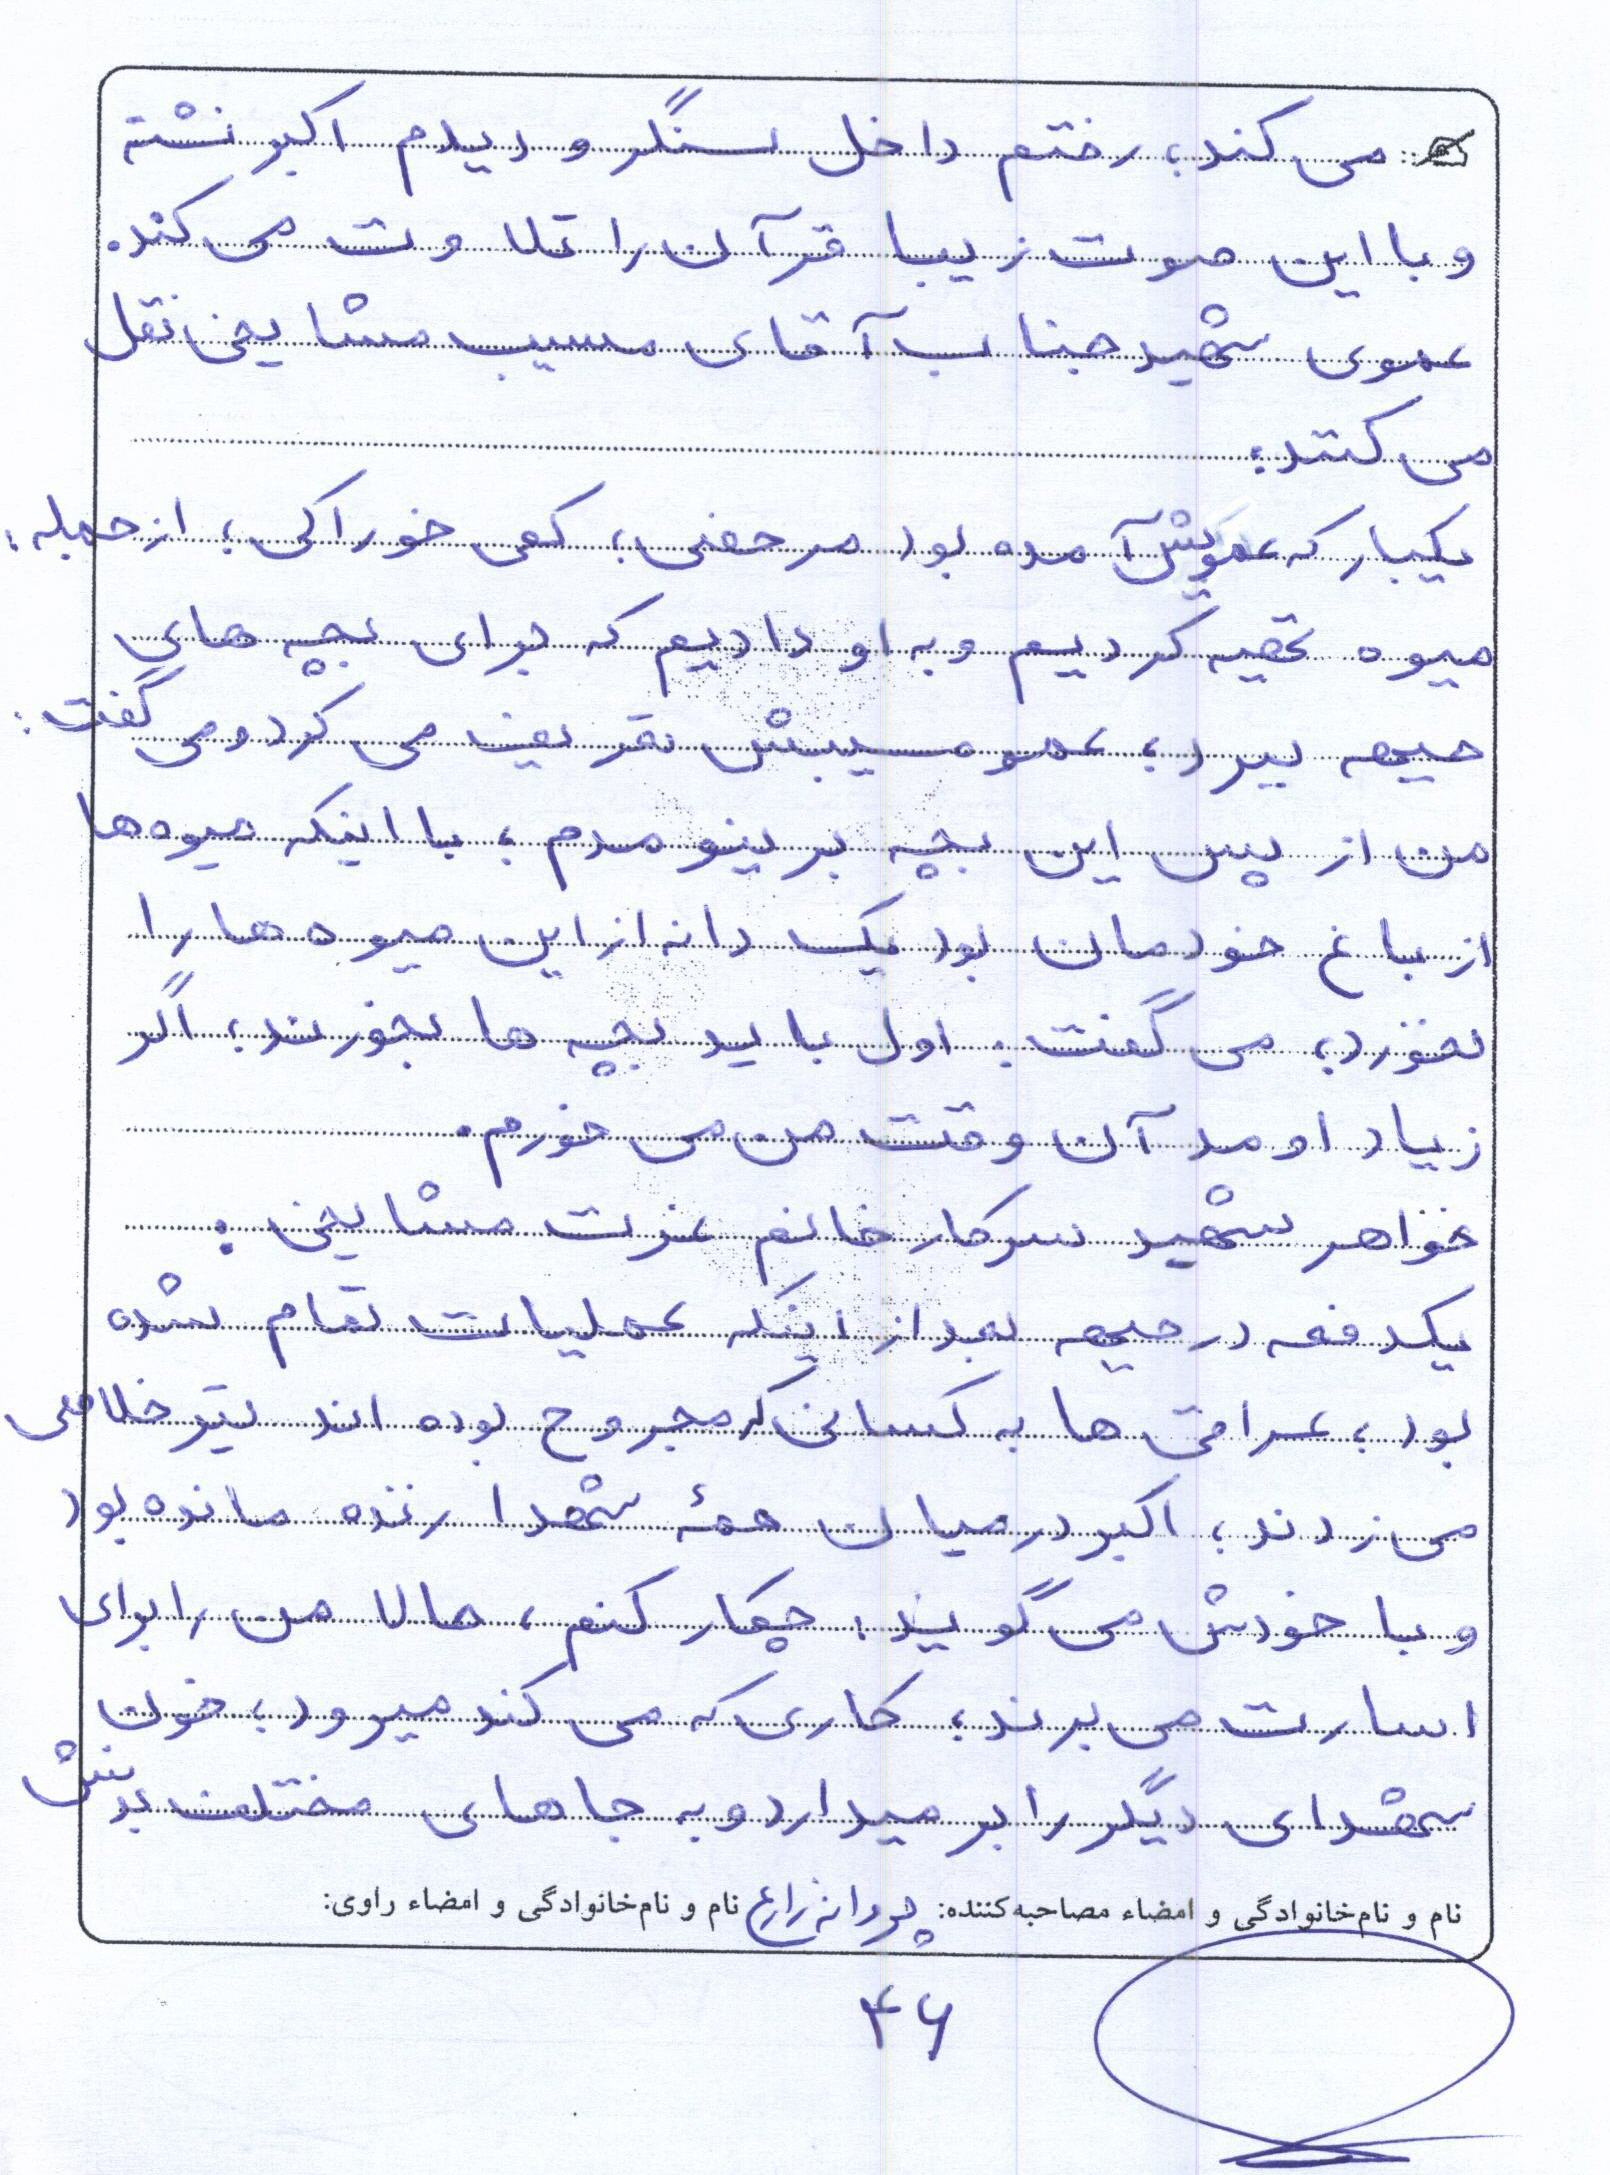 می کند، رفتم داخل سنگر و دیدم اکبر نشته
و با این صوت زیبا قرآن را تلاوت می کند.
عموی شهید جناب آقای مسیب مشایخی نقل
می کنند:
یکبار که عمویش آمده بود مرخصی، کمی خوراکی، از جمله:
میوه تهیه کردیم و به او دادیم که برای بچه های
جبهه ببرد، عمو مسیبش تعریف می کرد و می گفت:
من از پس این بچه بر نیومدم، با اینکه میوه ها
از باغ خودمان بود یک دانه از این میوه ها را
نخورد، می گفت: اول باید بچه ها بخورند، اگر
زیاد اومد آن وقت من می خورم.
خواهر شهید سرکار خانم عزت مشایخی:
یکدفعه در جبهه بعد از اینکه عملیات تمام شده
بود، عراقی ها به کسانی که مجروح بوده اند تیر خلاصی
می زدند، اکبر در میان همهٔ شهدا زنده مانده بود
و با خودش می گویند: چیکار کنم، حالا من را برای
اسارت می برند، کاری که می کند میرود، خون
شهدای دیگر را بر میدارد و به جاهای مختلف بدنش
نام و نام‌خانوادگی و امضاء مصاحبه‌کننده: پروانه زارع نام و نام‌خانوادگی و امضاء راوی:
۴۶